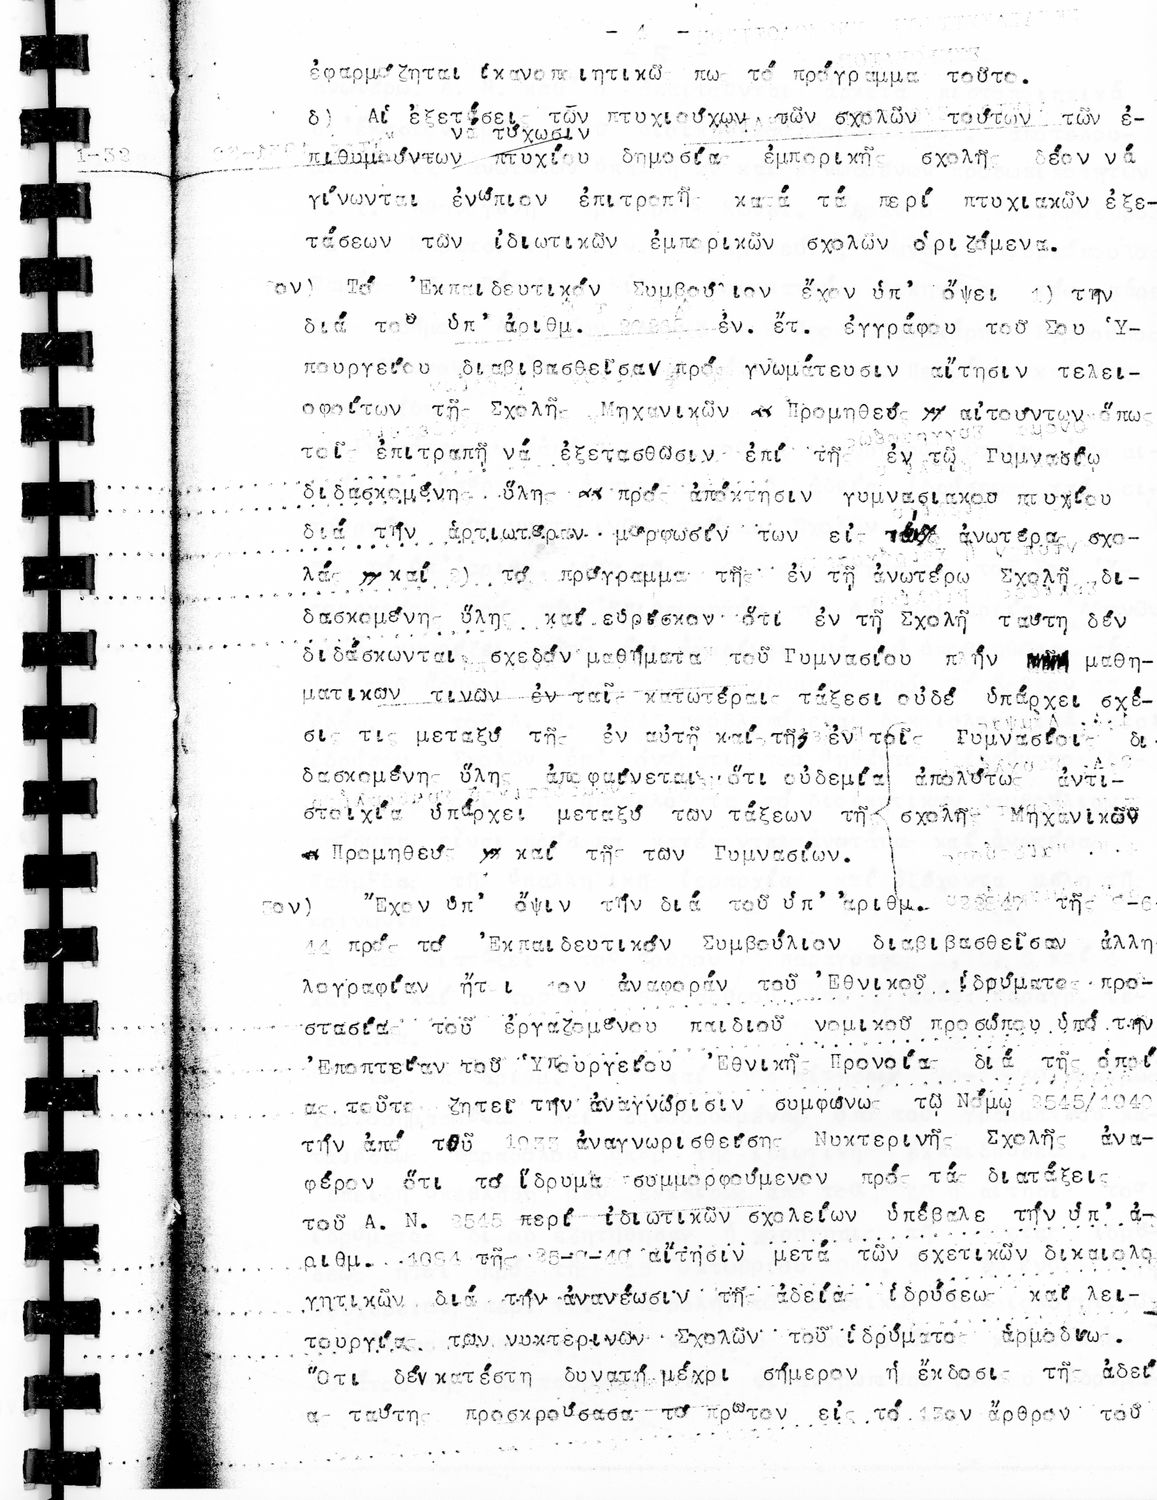 - 4 -
ἐφαρμόζηται ἱκανοποιητικῶς πως τό πρόγραμμα τοῦτο.
δ) Αἱ ἐξετάσεις τῶν πτυχιούχων τῶν σχολῶν τούτων τῶν ἐ-
νά τύχωσιν
πιθυμούντων πτυχίου δημοσίας ἐμπορικῆς σχολῆς δέον νά
γίνωνται ἐνώπιον ἐπιτροπῆς κατά τά περί πτυχιακῶν ἐξε-
τάσεων τῶν ἰδιωτικῶν ἐμπορικῶν σχολῶν ὁριζόμενα.
ον) Τό Ἐκπαιδευτικόν Συμβούλιον ἔχον ὑπ' ὄψει 1) την
διά τοῦ ὑπ' ἀριθμ. ἐν. ἔτ. ἐγγράφου τοῦ Σου Ὑ-
πουργείου διαβιβασθεῖσαν πρός γνωμάτευσιν αἴτησιν τελει-
οφοίτων τῆς Σχολῆς Μηχανικῶν « Προμηθεύς » αἰτούντων ὅπως
τοῖς ἐπιτραπῇ νά ἐξετασθῶσιν ἐπί τῆς ἐν τῷ Γυμνασίῳ
διδασκομένης ὕλης « πρός ἀπόκτησιν γυμνασιακοῦ πτυχίου
διά τήν ἀρτιωτέραν μόρφωσίν των εἰς τάς ἀνωτέρας σχο-
λάς » καί 2) τό πρόγραμμα τῆς ἐν τῇ ἀνωτέρω Σχολῇ δι-
δασκομένης ὕλης καί εὑρίσκον ὅτι ἐν τῇ Σχολῇ ταύτῃ δέν
διδάσκωνται σχεδόν μαθήματα τοῦ Γυμνασίου πλήν μαθη-
ματικων τινων ἐν ταῖς κατωτέραις τάξεσι οὐδέ ὑπάρχει σχέ-
σις τις μεταξύ τῆς ἐν αὐτῇ καί τῆς ἐν τοῖς Γυμνασίοις δι-
δασκομένης ὕλης ἀποφαίνεται ὅτι οὐδεμία ἀπολύτως ἀντι-
στοιχία ὑπάρχει μεταξύ των τάξεων τῆς σχολῆς Μηχανικῶν
« Προμηθεύς » καί τῆς των Γυμνασίων.
ον) Ἔχον ὑπ' ὄψιν τήν διά τοῦ ὑπ' ἀριθμ. τῆς -6-
44 πρός τό Ἐκπαιδευτικόν Συμβούλιον διαβιβασθεῖσαν ἀλλη-
λογραφίαν ἤτοι 1ον ἀναφοράν τοῦ Ἐθνικοῦ ἱδρύματος προ-
στασίας τοῦ ἐργαζομένου παιδιοῦ νομικοῦ προσώπου ὑπό την
Ἐποπτείαν τοῦ Ὑπουργείου Ἐθνικῆς Προνοίας διά τῆς ὁποί
ας τοῦτο ζητεῖ τήν ἀναγνώρισιν συμφώνως τῷ Νόμῳ 2545/1940
τήν ἀπό τοῦ ἀναγνωρισθείσης Νυκτερινῆς Σχολῆς ἀνα-
φέρον ὅτι τό ἵδρυμα συμμορφούμενον πρός τάς διατάξεις
τοῦ Α. Ν. 2545 περί ἰδιωτικῶν σχολείων ὑπέβαλε τήν ὑπ' ἀ-
ριθμ. τῆς αἴτησίν μετά τῶν σχετικῶν δικαιολο
γητικῶν διά τήν ἀνανέωσιν τῆς ἀδείας ἱδρύσεως καί λει-
τουργίας των νυκτερινων Σχολῶν τοῦ ἱδρύματος ἁρμοδίως.
Ὅτι δέν κατέστη δυνατή μέχρι σήμερον ἡ ἔκδοσις τῆς ἀδεί
ας ταύτης προσκρούσασα τό πρῶτον εἰς τό 15ον ἄρθρον τοῦ